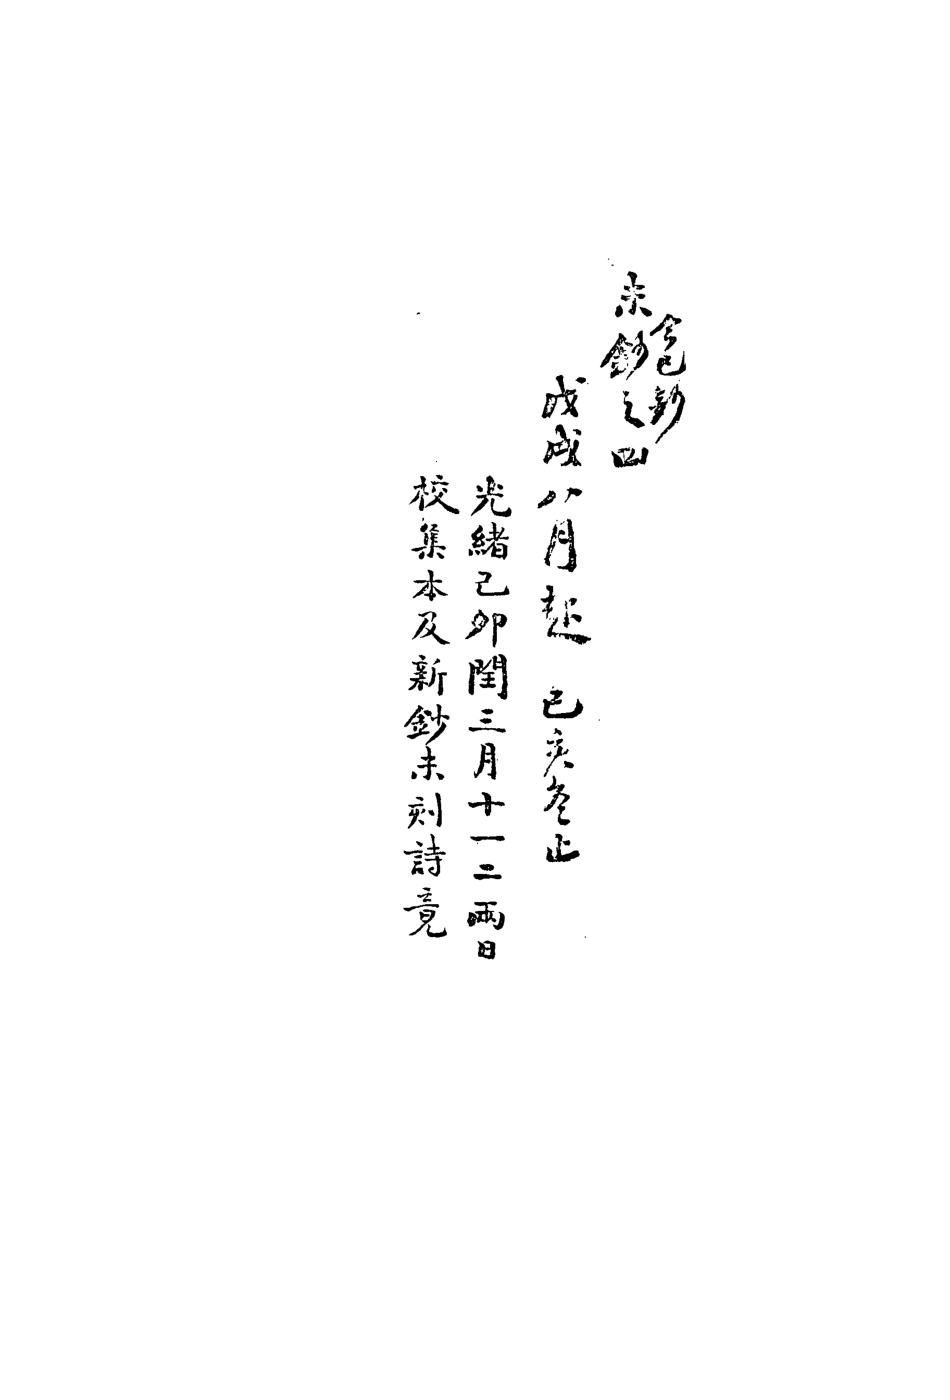 今已鈔
未鈔之四
戊戌八月起 己亥冬止
光緒己卯閏三月十一二兩日
校集本及新鈔未刻詩竟